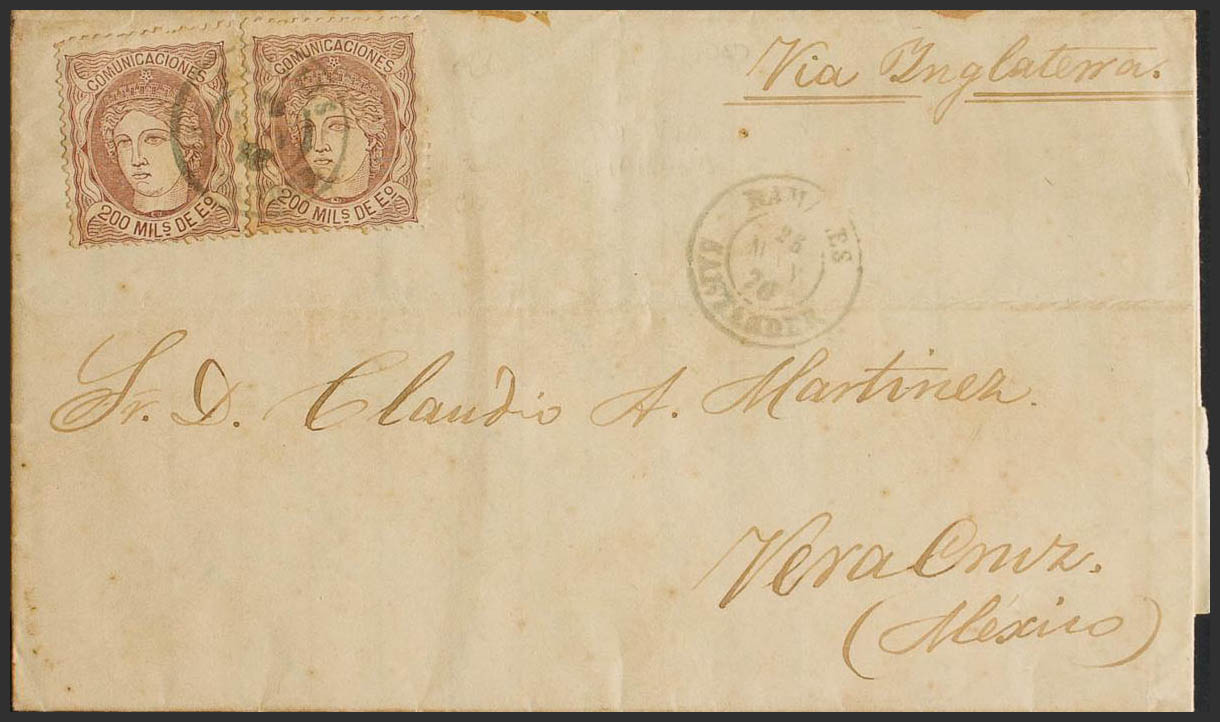 COMUNICACIONES
200 MILS DE Eº
COMUNICACIONES
200 MILS DE Eº
Via Inglaterra.
SANTANDER
Sr. D. Claudio A. Martinez.
Vera Cruz.
(México)